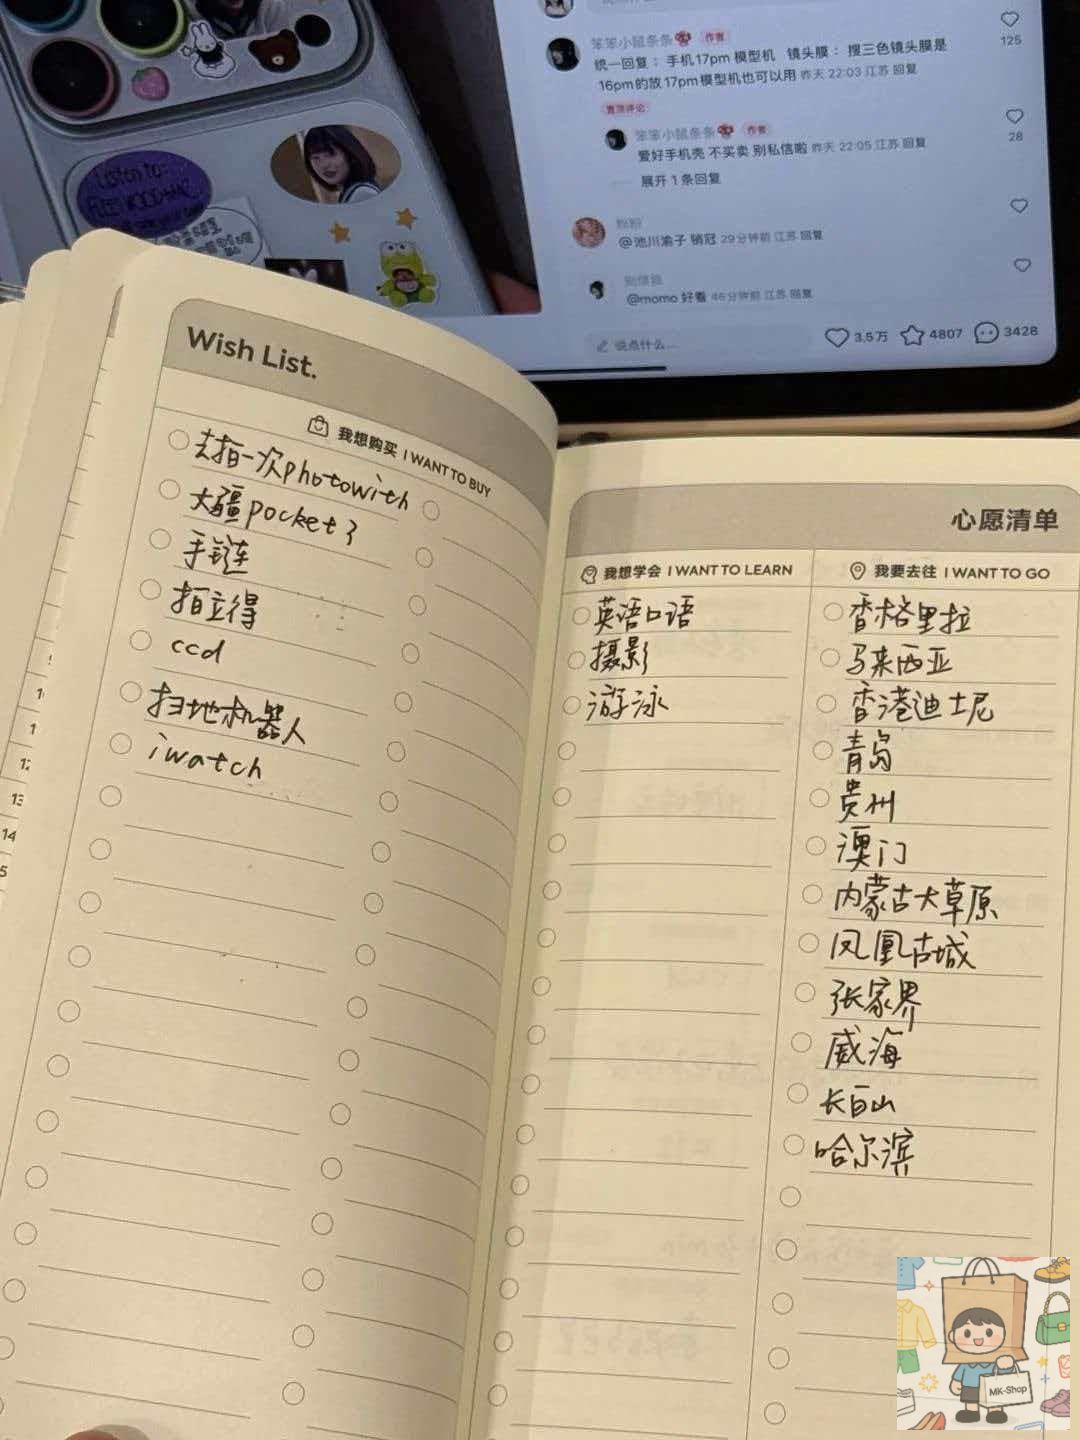 笨笨小鼠条条 作者
统一回复：手机17pm 模型机 镜头膜：搜三色镜头膜是
16pm的放17pm模型机也可以用 昨天 22:03 江苏 回复
置顶评论
笨笨小鼠条条 作者
爱好手机壳 不买卖 别私信啦 昨天 22:05 江苏 回复
展开1条回复
@池川渝子 销冠 29分钟前 江苏 回复
@momo 好看 46分钟前 江苏 回复
说点什么...
3.5万 4807 3428
125
28
Listen to:
Wish List.
我想购买 I WANT TO BUY
去拍一次photowith
大疆pocket3
手链
拍立得
ccd
扫地机器人
iwatch
心愿清单
我想学会 I WANT TO LEARN
英语口语
摄影
游泳
我要去往 I WANT TO GO
香格里拉
马来西亚
香港迪士尼
青岛
贵州
澳门
内蒙古大草原
凤凰古城
张家界
威海
长白山
哈尔滨
12
13
14
MK-Shop